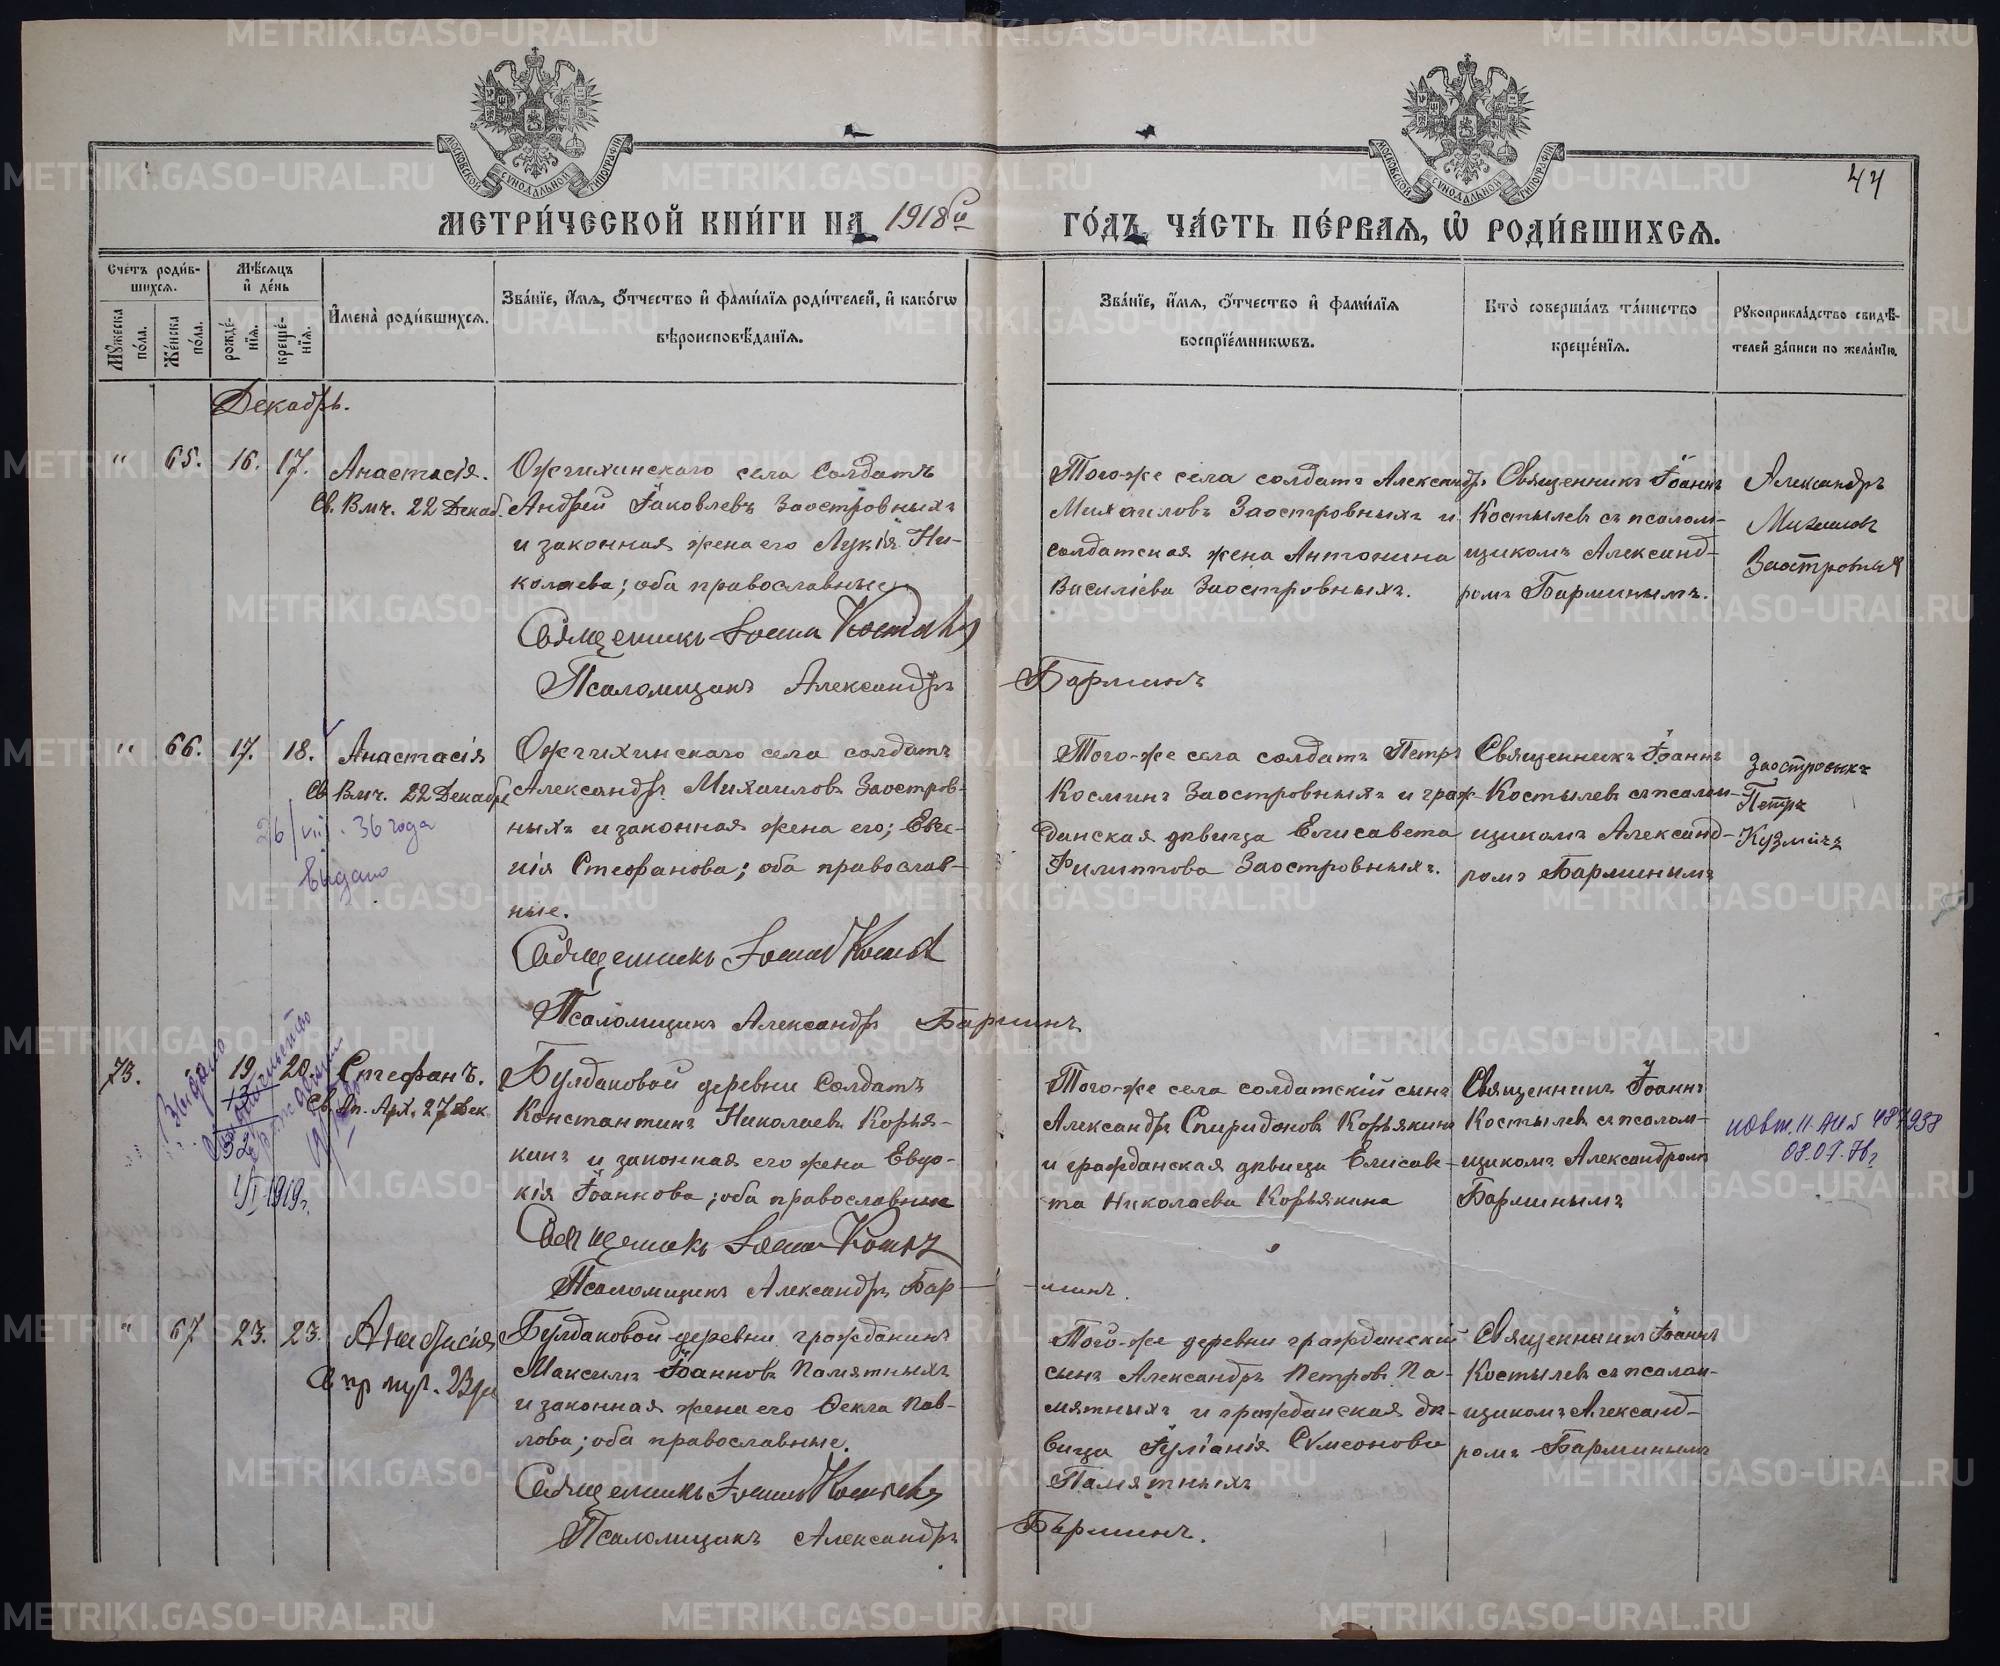 МЕТРИ́ЧЕСКОЙ КНИ́ГИ НА 1918й ГО́ДЪ, ЧА́СТЬ ПЕ́РВАѦ, Ѡ҆ РОДИ́ВШИХСѦ.
44
МОСКОВСКОЙ СѴНОДАЛЬНОЙ ТИПОГРАФІИ
МОСКОВСКОЙ СѴНОДАЛЬНОЙ ТИПОГРАФІИ
Сче́тъ роди́в-
шихсѧ.
Мꙋ́жеска по́ла.
Же́нска по́ла.
Мѣ́сѧцъ
и҆ де́нь
рожде́-
нїѧ.
креще́-
нїѧ.
И҆мена̀ роди́вшихсѧ.
Зва́нїе, и҆́мѧ, ѻ҆́тчество и҆ фами́лїѧ роди́телей, и҆ како́гѡ
вѣроисповѣ́данїѧ.
Зва́нїе, и҆́мѧ, ѻ҆́тчество и҆ фами́лїѧ
воспрїе́мникѡвъ.
Кто̀ соверша́лъ та́инство
креще́нїѧ.
Рꙋкоприкла́дство свидѣ́-
телей за́писи по жела́нїю.
Декабрь.
" 65. 16. 17. Анастасія.
Св. Вмч. 22 Декаб.
Ожгихинскаго села солдатъ
Андрей Іаковлевъ Заостровныхъ
и законная жена его Лукія Ни-
колаева; оба православные
Священникъ Іоаннъ
Псаломщикъ Александръ Барминъ
Того-же села солдатъ Александръ
Михаиловъ Заостровныхъ и
солдатская жена Антонина
Василіева Заостровныхъ.
Священникъ Іоаннъ
Костылевъ съ псалом-
щикомъ Александ-
ромъ Барминымъ.
Александръ
Заостровных
" 66. 17. 18. Анастасія
Св. Вмч. 22 Декабря
26/VIII. 36 года
выдано
Ожгихинскаго села солдатъ
Александръ Михаиловъ Заостров-
ныхъ и законная жена его; Евге-
нія Стефанова; оба православ-
ные.
Священникъ Іоаннъ
Псаломщикъ Александръ Барминъ
Того-же села солдатъ Петръ
Косминъ Заостровныхъ и граж-
данская дѣвица Елисавета
Филиппова Заостровныхъ.
Священникъ Іоаннъ
Костылевъ съ псалом-
щикомъ Александ-
ромъ Барминымъ
Петръ
Кузмичъ
73. 19 20. Стефанъ.
Ап. Арх. 27 Дек.
Выдано
1919г.
Булдаковой деревни солдатъ
Константинъ Николаевъ Корья-
кинъ и законная его жена Евдо-
кія Іоаннова; оба православные
Священникъ Іоаннъ
Псаломщикъ Александръ Бар-
минъ.
Того-же села солдатскій сынъ
Александръ Спиридоновъ Корьякинъ
и гражданская дѣвица Елисаве-
та Николаева Корьякина
Священникъ Іоаннъ
Костылевъ съ псалом-
щикомъ Александромъ
Барминымъ
" 67 23. 23.
Булдаковой деревни гражданинъ
Максимъ Іоанновъ Памятныхъ
и законная жена его Ѳекла Пав-
лова; оба православные.
Священникъ Іоаннъ
Псаломщикъ Александръ Барминъ.
Того-же деревни гражданскій
сынъ Александръ Петровъ Па-
мятныхъ и гражданская дѣ-
вица Іуліанія Сумеонова
Памятныхъ
Священникъ Іоаннъ
Костылевъ съ псалом-
щикомъ Александ-
ромъ Барминымъ
METRIKI.GASO-URAL.RU